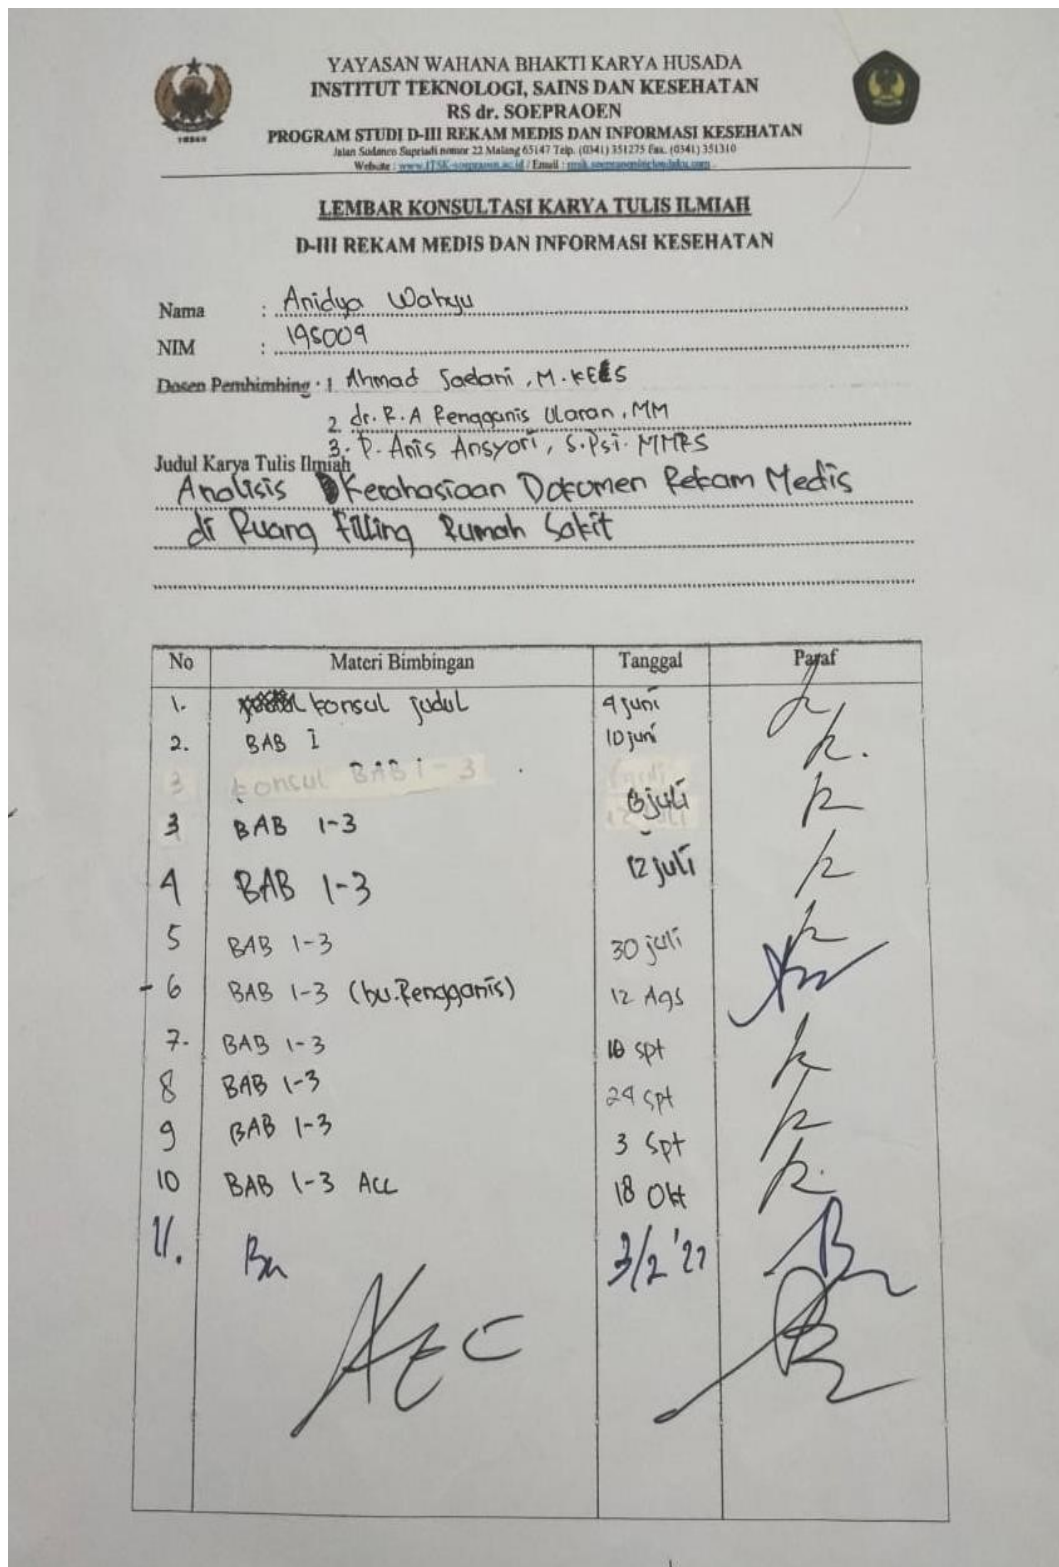 YAYASAN WAHANA BHAKTI KARYA HUSADA
INSTITUT TEKNOLOGI, SAINS DAN KESEHATAN
RS dr. SOEPRAOEN
PROGRAM STUDI D-III REKAM MEDIS DAN INFORMASI KESEHATAN
Jalan Sudanco Supriadi nomor 22 Malang 65147 Telp. (0341) 351275 Fax. (0341) 351310
Website : www.ITSK-soepraoen.ac.id / Email :
LEMBAR KONSULTASI KARYA TULIS ILMIAH
D-III REKAM MEDIS DAN INFORMASI KESEHATAN
Nama : Anidya Wahyu
NIM : 195009
Dosen Pembimbing : 1. Ahmad Jaelani, M.KES
2. dr. R.A Rengganis Ularan, MM
3. P. Anis Ansyori, S.Psi. MMRS
Judul Karya Tulis Ilmiah
Analisis Kerahasiaan Dokumen Rekam Medis
di Ruang Filling Rumah Sakit
No Materi Bimbingan Tanggal Paraf
1. konsul judul 4 juni
2. BAB I 10 juni
3 konsul BAB 1-3
3 BAB 1-3 6 juli
4 BAB 1-3 12 juli
5 BAB 1-3 30 juli
6 BAB 1-3 (bu.Rengganis) 12 Ags
7. BAB 1-3 10 spt
8 BAB 1-3 24 spt
9 BAB 1-3 3 Spt
10 BAB 1-3 Acc 18 Okt
11. 3/2 '22
ACC